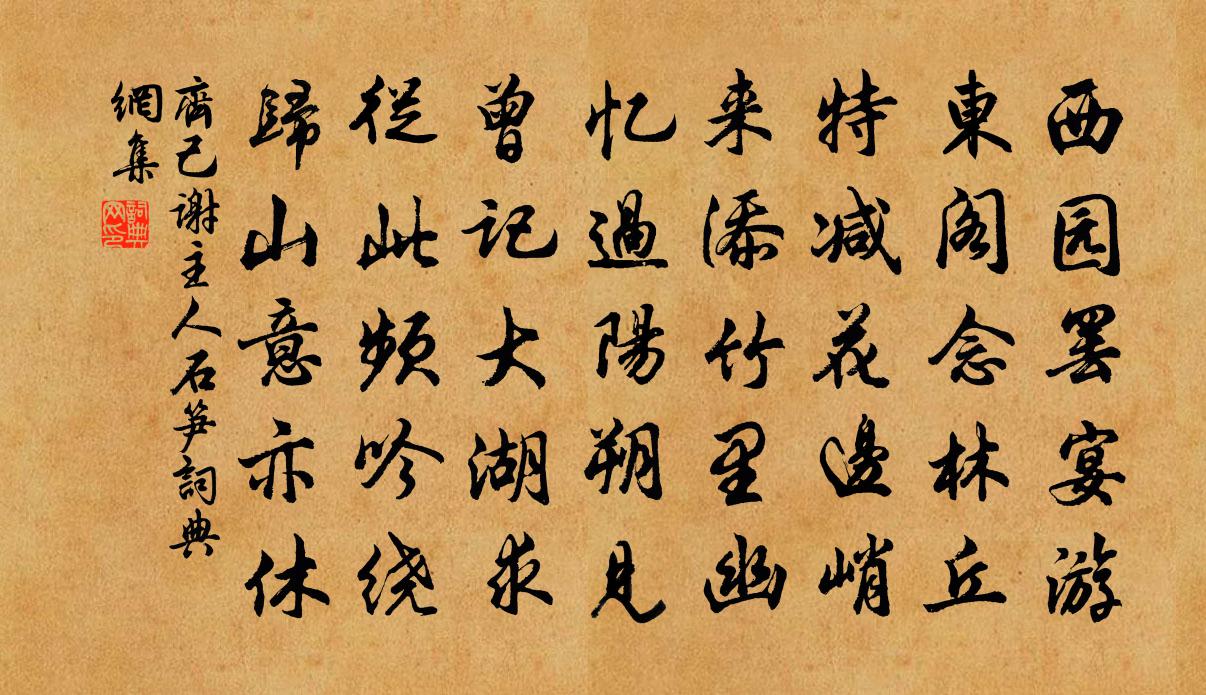 西园罢宴游
東阁念林丘
特减花邊峭
来添竹里幽
忆過陽朔見
曾记大湖求
從此频吟绕
歸山意亦休
齊己谢主人石笋詞典
網集
詞典
网印